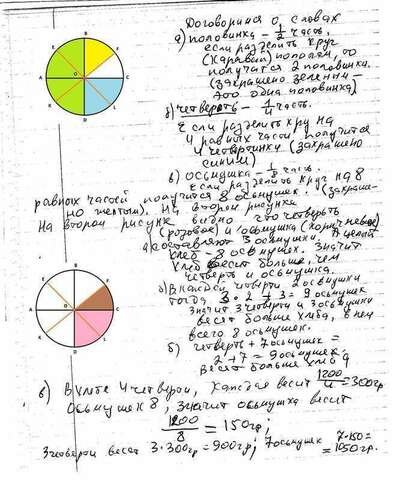 Договоримся о словах
а) половинка – 1/2 часть.
если разделить круг
(каравай) пополам, то
получится 2 половинки.
(закрашено зелёным –
это одна половинка)
б) четверть – 1/4 часть.
Если разделить круг на
4 равных части получится
4 четвертинки (закрашено
синим)
в) осьмушка – 1/8 часть.
Если разделить круг на 8
равных частей получится 8 осьмушек. (закраше-
но желтым). На втором рисунке
На втором рисунке видно что четверть
(розовое) и осьмушка (коричневое)
а) составляют 3 осьмушки. А целый
хлеб – 8 осьмушек. Значит
хлеб весит больше, чем
четверть и осьмушка.
б) В каждой четверти 2 осьмушки
тогда 3·2+3=9 осьмушек
значит 3 четверти и 3 осьмушки
весят больше хлеба, в нем
всего 8 осьмушек.
б) четверть + 7 осьмушек =
2+7=9 осьмушек
весят больше хлеба
в) 4 четверти, каждая весит 1200/4=300гр
Осьмушек 8, значит осьмушка весит
1200/8 = 150гр;
3 четверти весят 3·300гр=900гр; 7 осьмушек 7·150=
=1050гр.
E B F
A O C
K D L
E B F
A O C
K D L